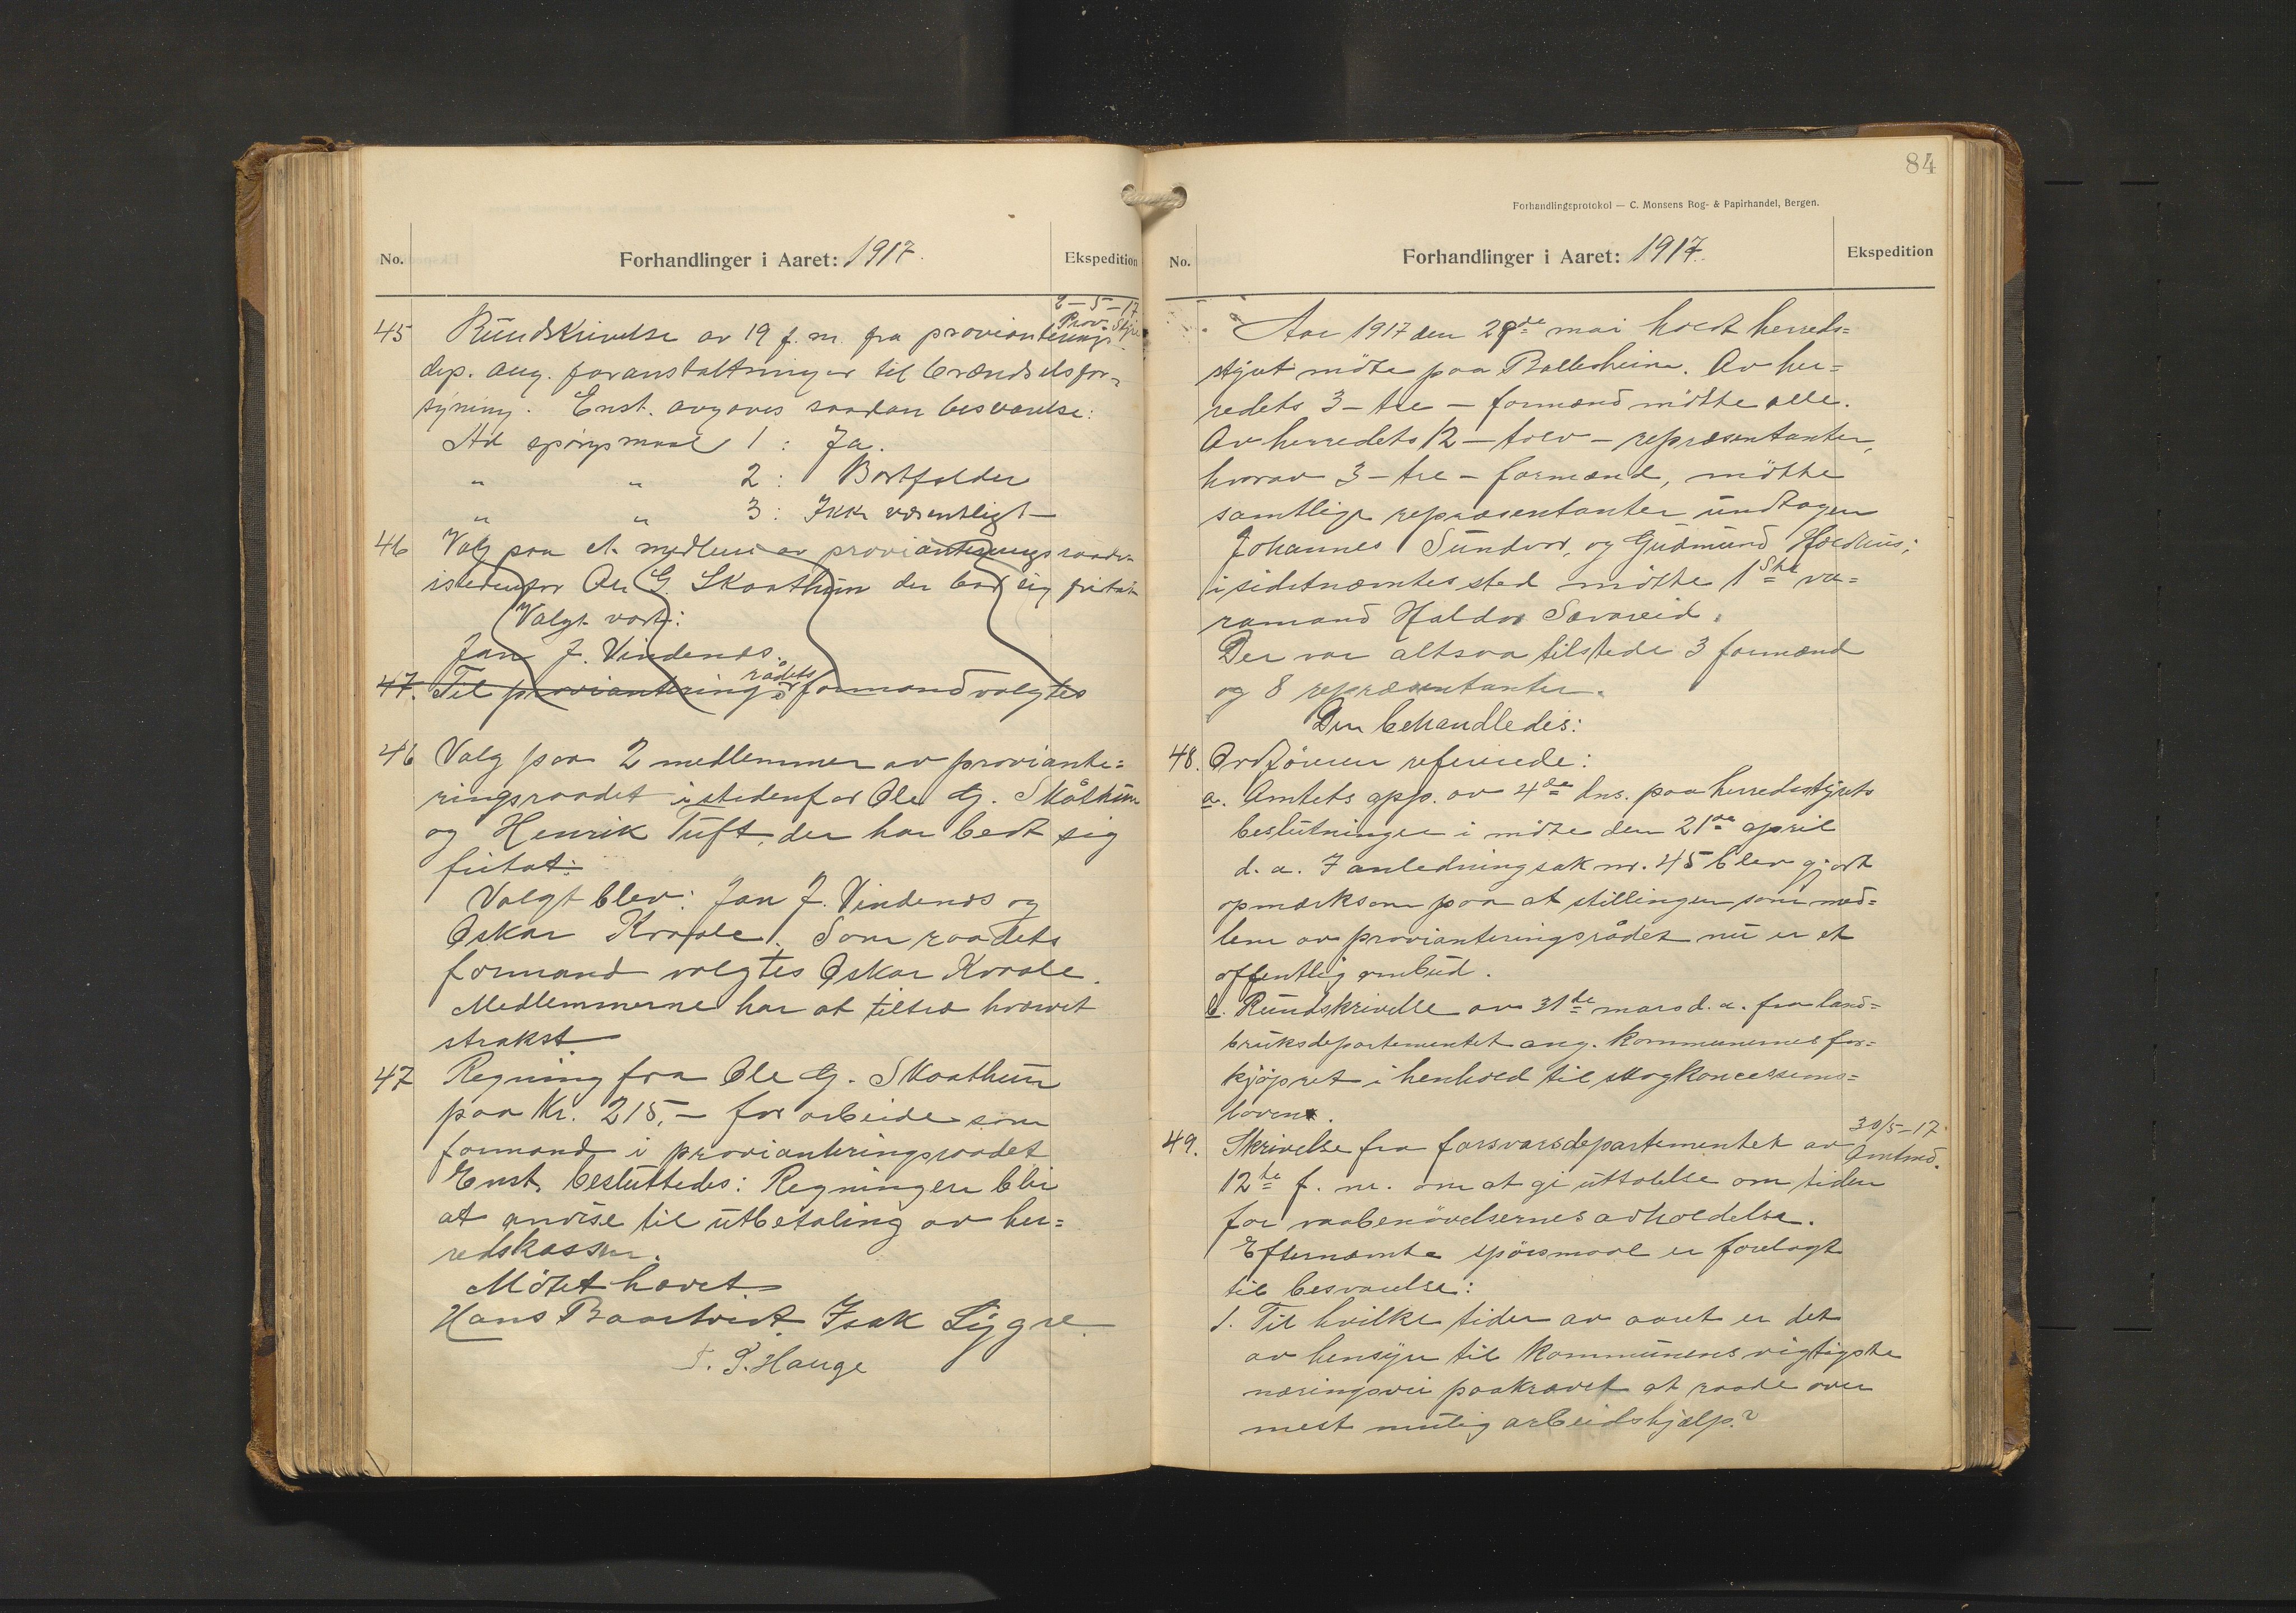 No.
Forhandlinger i Aaret: 1917.
Ekspedition
2-5-17
Prov. Styre
45 Rundskrivelse av 19 f. m. fra provianterings-
dep. ang. foranstaltninger til brændselsfor-
syning. Enst. avgaves saadan besvarelse:
Ad spörgsmaal 1: Ja.
" " 2: Bortfalder
" " 3: Ikke væsentligt
46 Valg paa et medlem av provianteringsraadet
istedenfor Ole G. Skaathun der bad sig fritat
Valgt vart:
Jan J. Vindenes.
47. Til provianteringsrådets formand valgtes
46 Valg paa 2 medlemmer av proviante=
ringsraadet istedenfor Ole G. Skåthun
og Henrik Tuft, der har bedt sig
fritat:
Valgt blev: Jan J. Vindenes og
Oskar Kvaale. Som raadets
formand valgtes Oskar Kvaale.
Medlemmerne har at tiltræ hvervet
strakst.
47 Regning fra Ole G. Skaathun
paa Kr. 215,- for arbeide som
formand i provianteringsraadet
Enst. besluttedes: Regningen blir
at anvise til utbetaling av her=
redskassen.
Mötet hævet
Hans Baartvedt. Isak Lygre.
T. T. Hauge
84
Forhandlingsprotokol — C. Monsens Bog- & Papirhandel, Bergen.
No.
Forhandlinger i Aaret: 1917.
Ekspedition
Aar 1917 den 29de mai holdt herreds=
styret möte paa Ballesheim. Av her=
redets 3 - tre - formænd mötte alle.
Av herredets 12 - tolv - repræsentanter,
hvorav 3 - tre - formænd, mötte
samtlige repræsentanter undtagen
Johannes Sundvor, og Gudmund Høldhus;
i sidstnævntes sted mötte 1ste va=
ramand Haldor Sævareid.
Der var altsaa tilstede 3 formænd
og 8 repræsentanter.
Der behandledes:
48. Ordföreren refererede:
a. Amtets opp. av 4de dns. paa herredsstyrets
beslutninger i möte den 21de april
d. a. I anledning sak nr. 45 blev gjort
opmerksom paa at stillingen som med=
lem av provianteringsrådet nu er et
offentlig ombud.
b. Rundskrivelse av 31te mars d. a. fra land=
bruksdepartementet ang. kommunernes for=
kjöpsret i henhold til skogkoncessions=
loven.
30/5-17.
Amtmd.
49. Skrivelse fra forsvarsdepartementet av
12te f. m. om at gi uttalelse om tiden
for vaabenövelsernes avholdelse.
Efternævnte spörsmaal er forelagt
til besvarelse:
1. Til hvilke tider av aaret er det
av hensyn til kommunens vigtigste
næringsvei paakrævet at raade over
mest mulig arbeidshjælp?